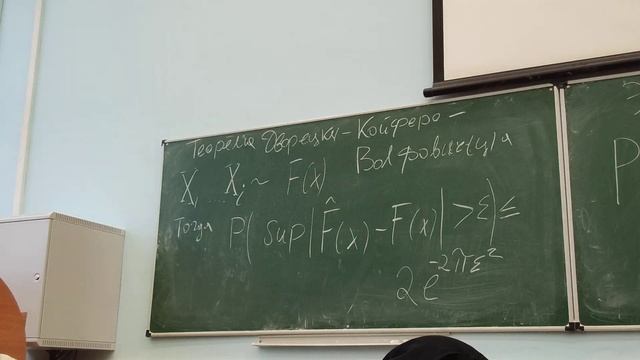 Теорема Дворецки – Койфера –
Волфовик(ц)а
X₁ ... Xᵢ ~ F(x)
Тогда P( sup | F̂(x) – F(x) | > ε) ≤
2e^{-2πε²}
P